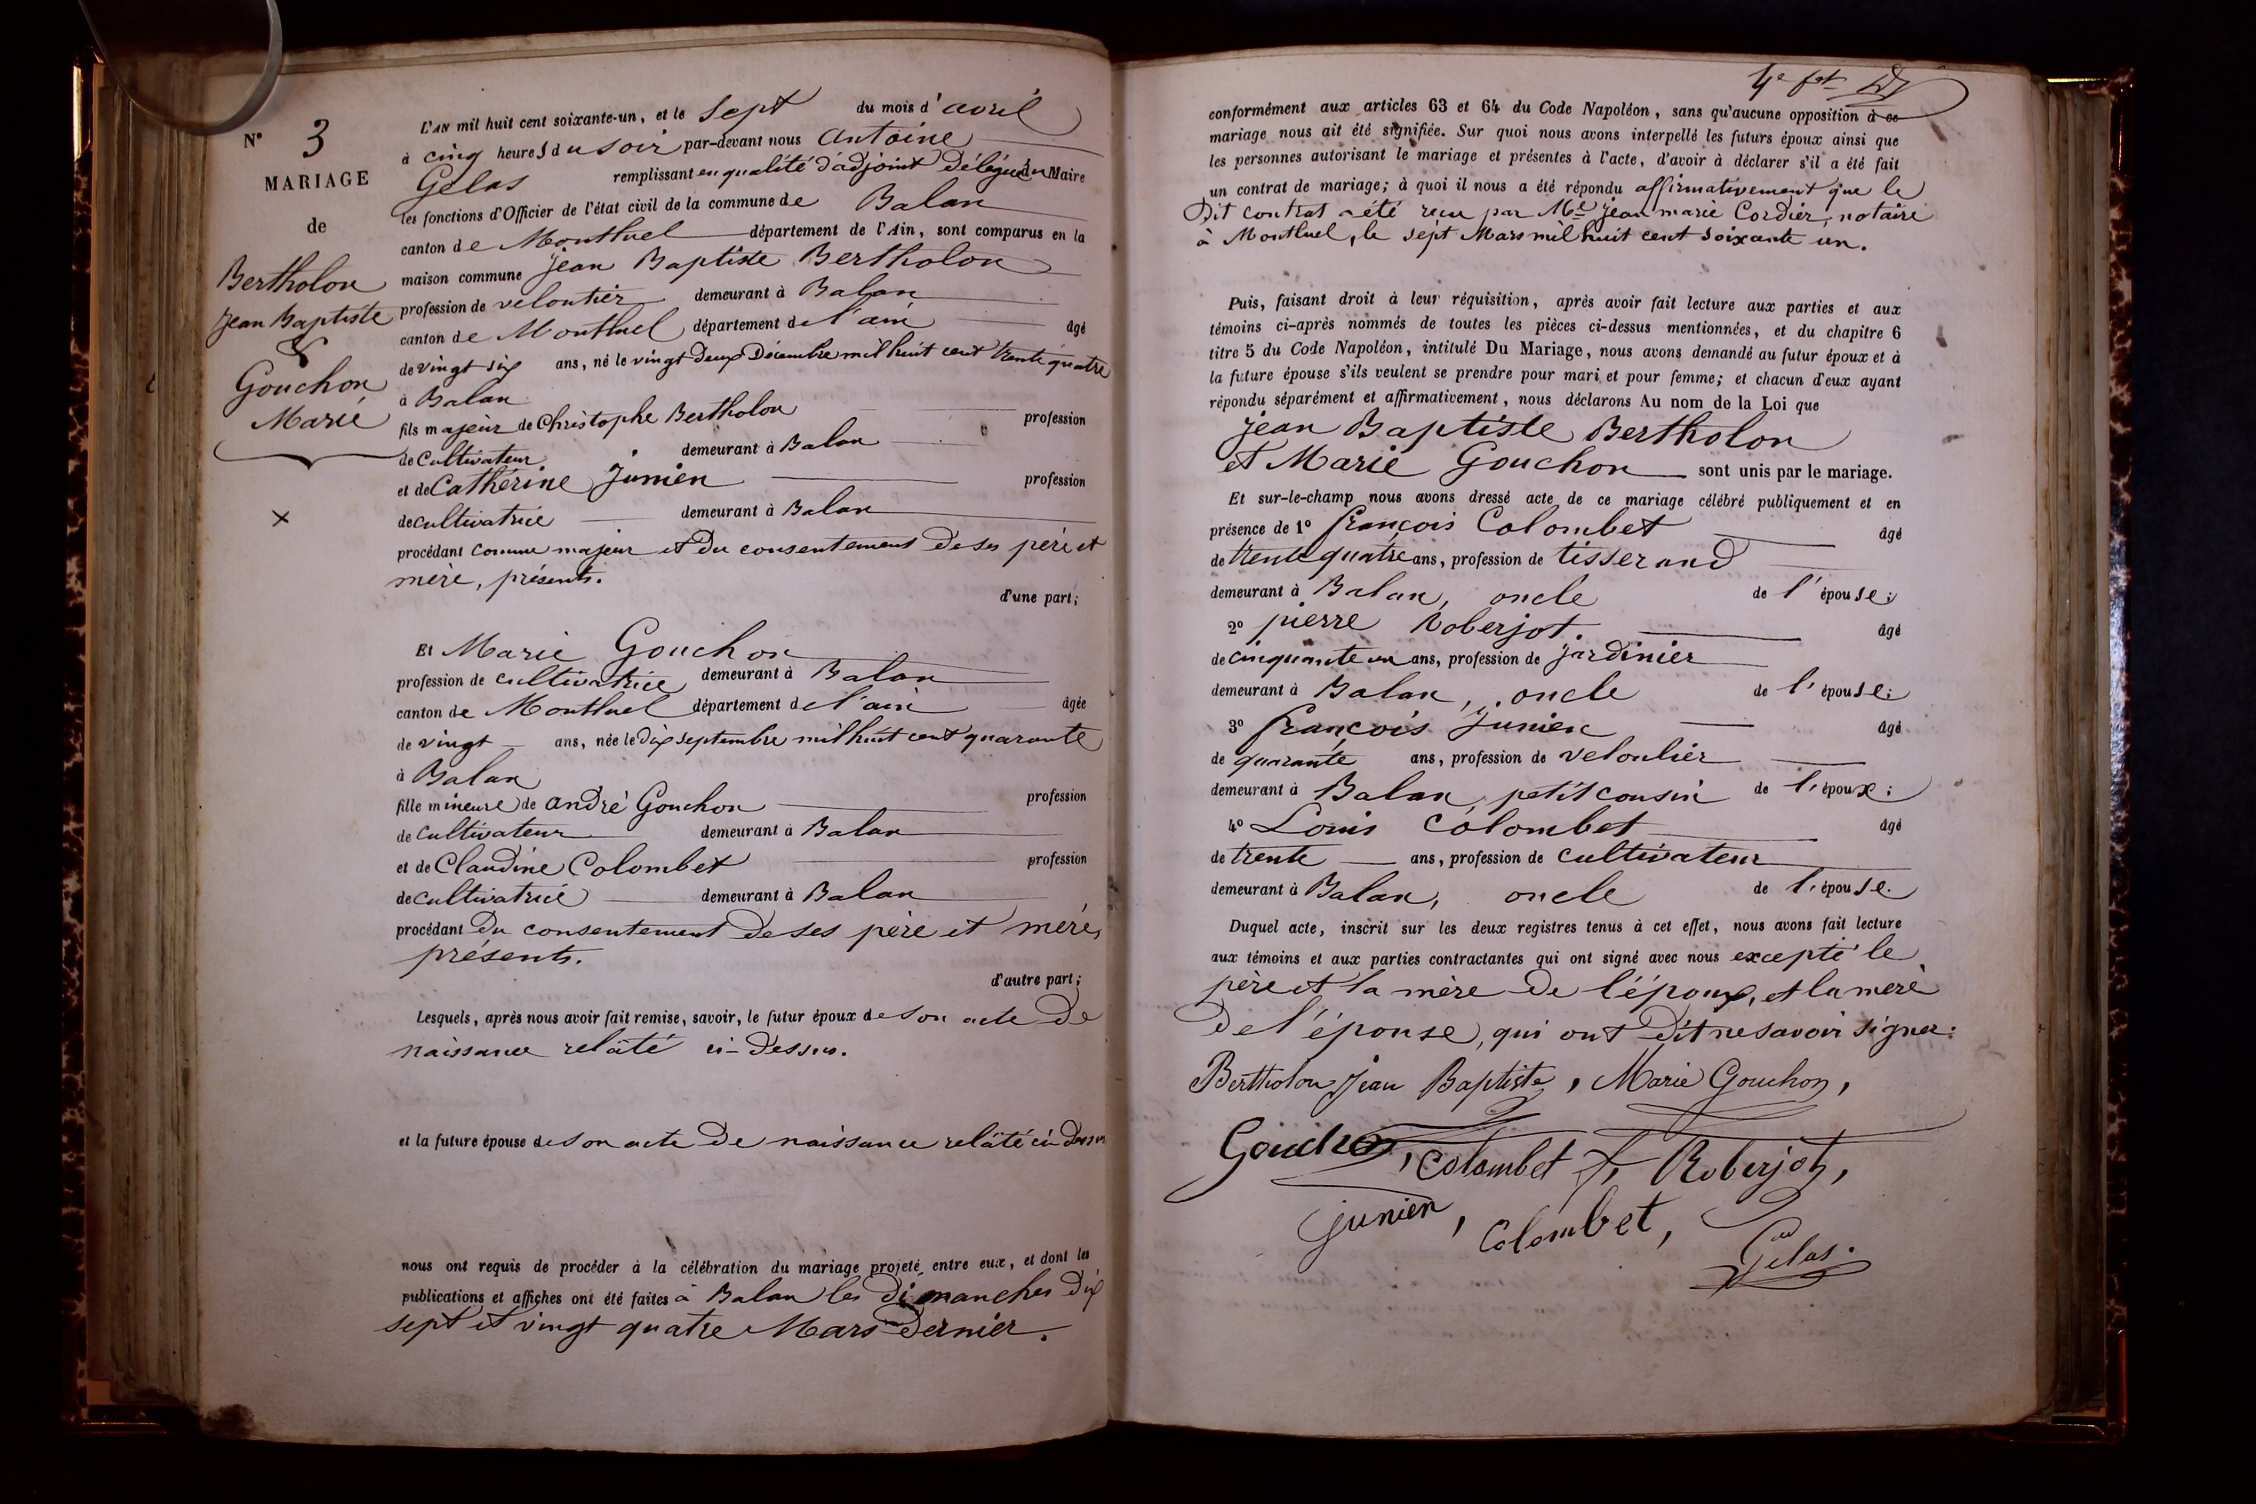 N° 3
MARIAGE
de
Bertholon
Jean Baptiste
&
Gouchon
Marie
L'AN mil huit cent soixante-un, et le sept du mois d'avril
à cinq heures du soir par-devant nous Antoine
Gelas remplissant en qualité d'adjoint Délégué du Maire
les fonctions d'Officier de l'état civil de la commune de Balan
canton de Montluel département de l'Ain, sont comparus en la
maison commune Jean Baptiste Bertholon
profession de veloutier demeurant à Balan
canton de Montluel département de l'ain âgé
de vingt six ans, né le vingt deux Décembre mil huit cent trente quatre
à Balan
fils majeur de Christophe Bertholon profession
de cultivateur demeurant à Balan
et de Cathérine Junien profession
de cultivatrice demeurant à Balan
procédant comme majeur et du consentement de ses père et
mère, présents.
d'une part;
Et Marie Gouchon
profession de cultivatrice demeurant à Balan
canton de Montluel département de l'ain âgée
de vingt ans, née le dix septembre mil huit cent quarante
à Balan
fille mineure de andré Gouchon profession
de cultivateur demeurant à Balan
et de Claudine Colombet profession
de cultivatrice demeurant à Balan
procédant du consentement de ses père et mère,
présents.
d'autre part;
Lesquels, après nous avoir fait remise, savoir, le futur époux de son acte de
naissance relaté ci-dessus.
et la future épouse de son acte de naissance relaté ci Dessus
nous ont requis de procéder à la célébration du mariage projeté entre eux, et dont les
publications et affiches ont été faites à Balan les dimanches dix
sept et vingt quatre Mars dernier.
conformément aux articles 63 et 64 du Code Napoléon, sans qu'aucune opposition à ce
mariage nous ait été signifiée. Sur quoi nous avons interpellé les futurs époux ainsi que
les personnes autorisant le mariage et présentes à l'acte, d'avoir à déclarer s'il a été fait
un contrat de mariage; à quoi il nous a été répondu affirmativement que le
Dit contrat a été reçu par Me Jean marie Cordier, notaire
à Montluel, le sept Mars mil huit cent soixante un.
Puis, faisant droit à leur réquisition, après avoir fait lecture aux parties et aux
témoins ci-après nommés de toutes les pièces ci-dessus mentionnées, et du chapitre 6
titre 5 du Code Napoléon, intitulé Du Mariage, nous avons demandé au futur époux et à
la future épouse s'ils veulent se prendre pour mari et pour femme; et chacun d'eux ayant
répondu séparément et affirmativement, nous déclarons Au nom de la Loi que
Jean Baptiste Bertholon
et Marie Gouchon sont unis par le mariage.
Et sur-le-champ nous avons dressé acte de ce mariage célébré publiquement et en
présence de 1° François Colombet âgé
de trente quatre ans, profession de tisserand
demeurant à Balan, oncle de l'épouse;
2° pierre Roberjot. âgé
de cinquante un ans, profession de jardinier
demeurant à Balan, oncle de l'épouse;
3° François Junien âgé
de quarante ans, profession de veloutier
demeurant à Balan, petit cousin de l'époux;
4° Louis Colombet âgé
de trente ans, profession de cultivateur
demeurant à Balan, oncle de l'épouse.
Duquel acte, inscrit sur les deux registres tenus à cet effet, nous avons fait lecture
aux témoins et aux parties contractantes qui ont signé avec nous excepté le
père et la mère de l'époux, et la mère
de l'épouse, qui ont dit ne savoir signer.
Bertholon Jean Baptiste, Marie Gouchon,
Gouchon, Colombet f, Roberjot,
junien, Colombet,
Gelas.